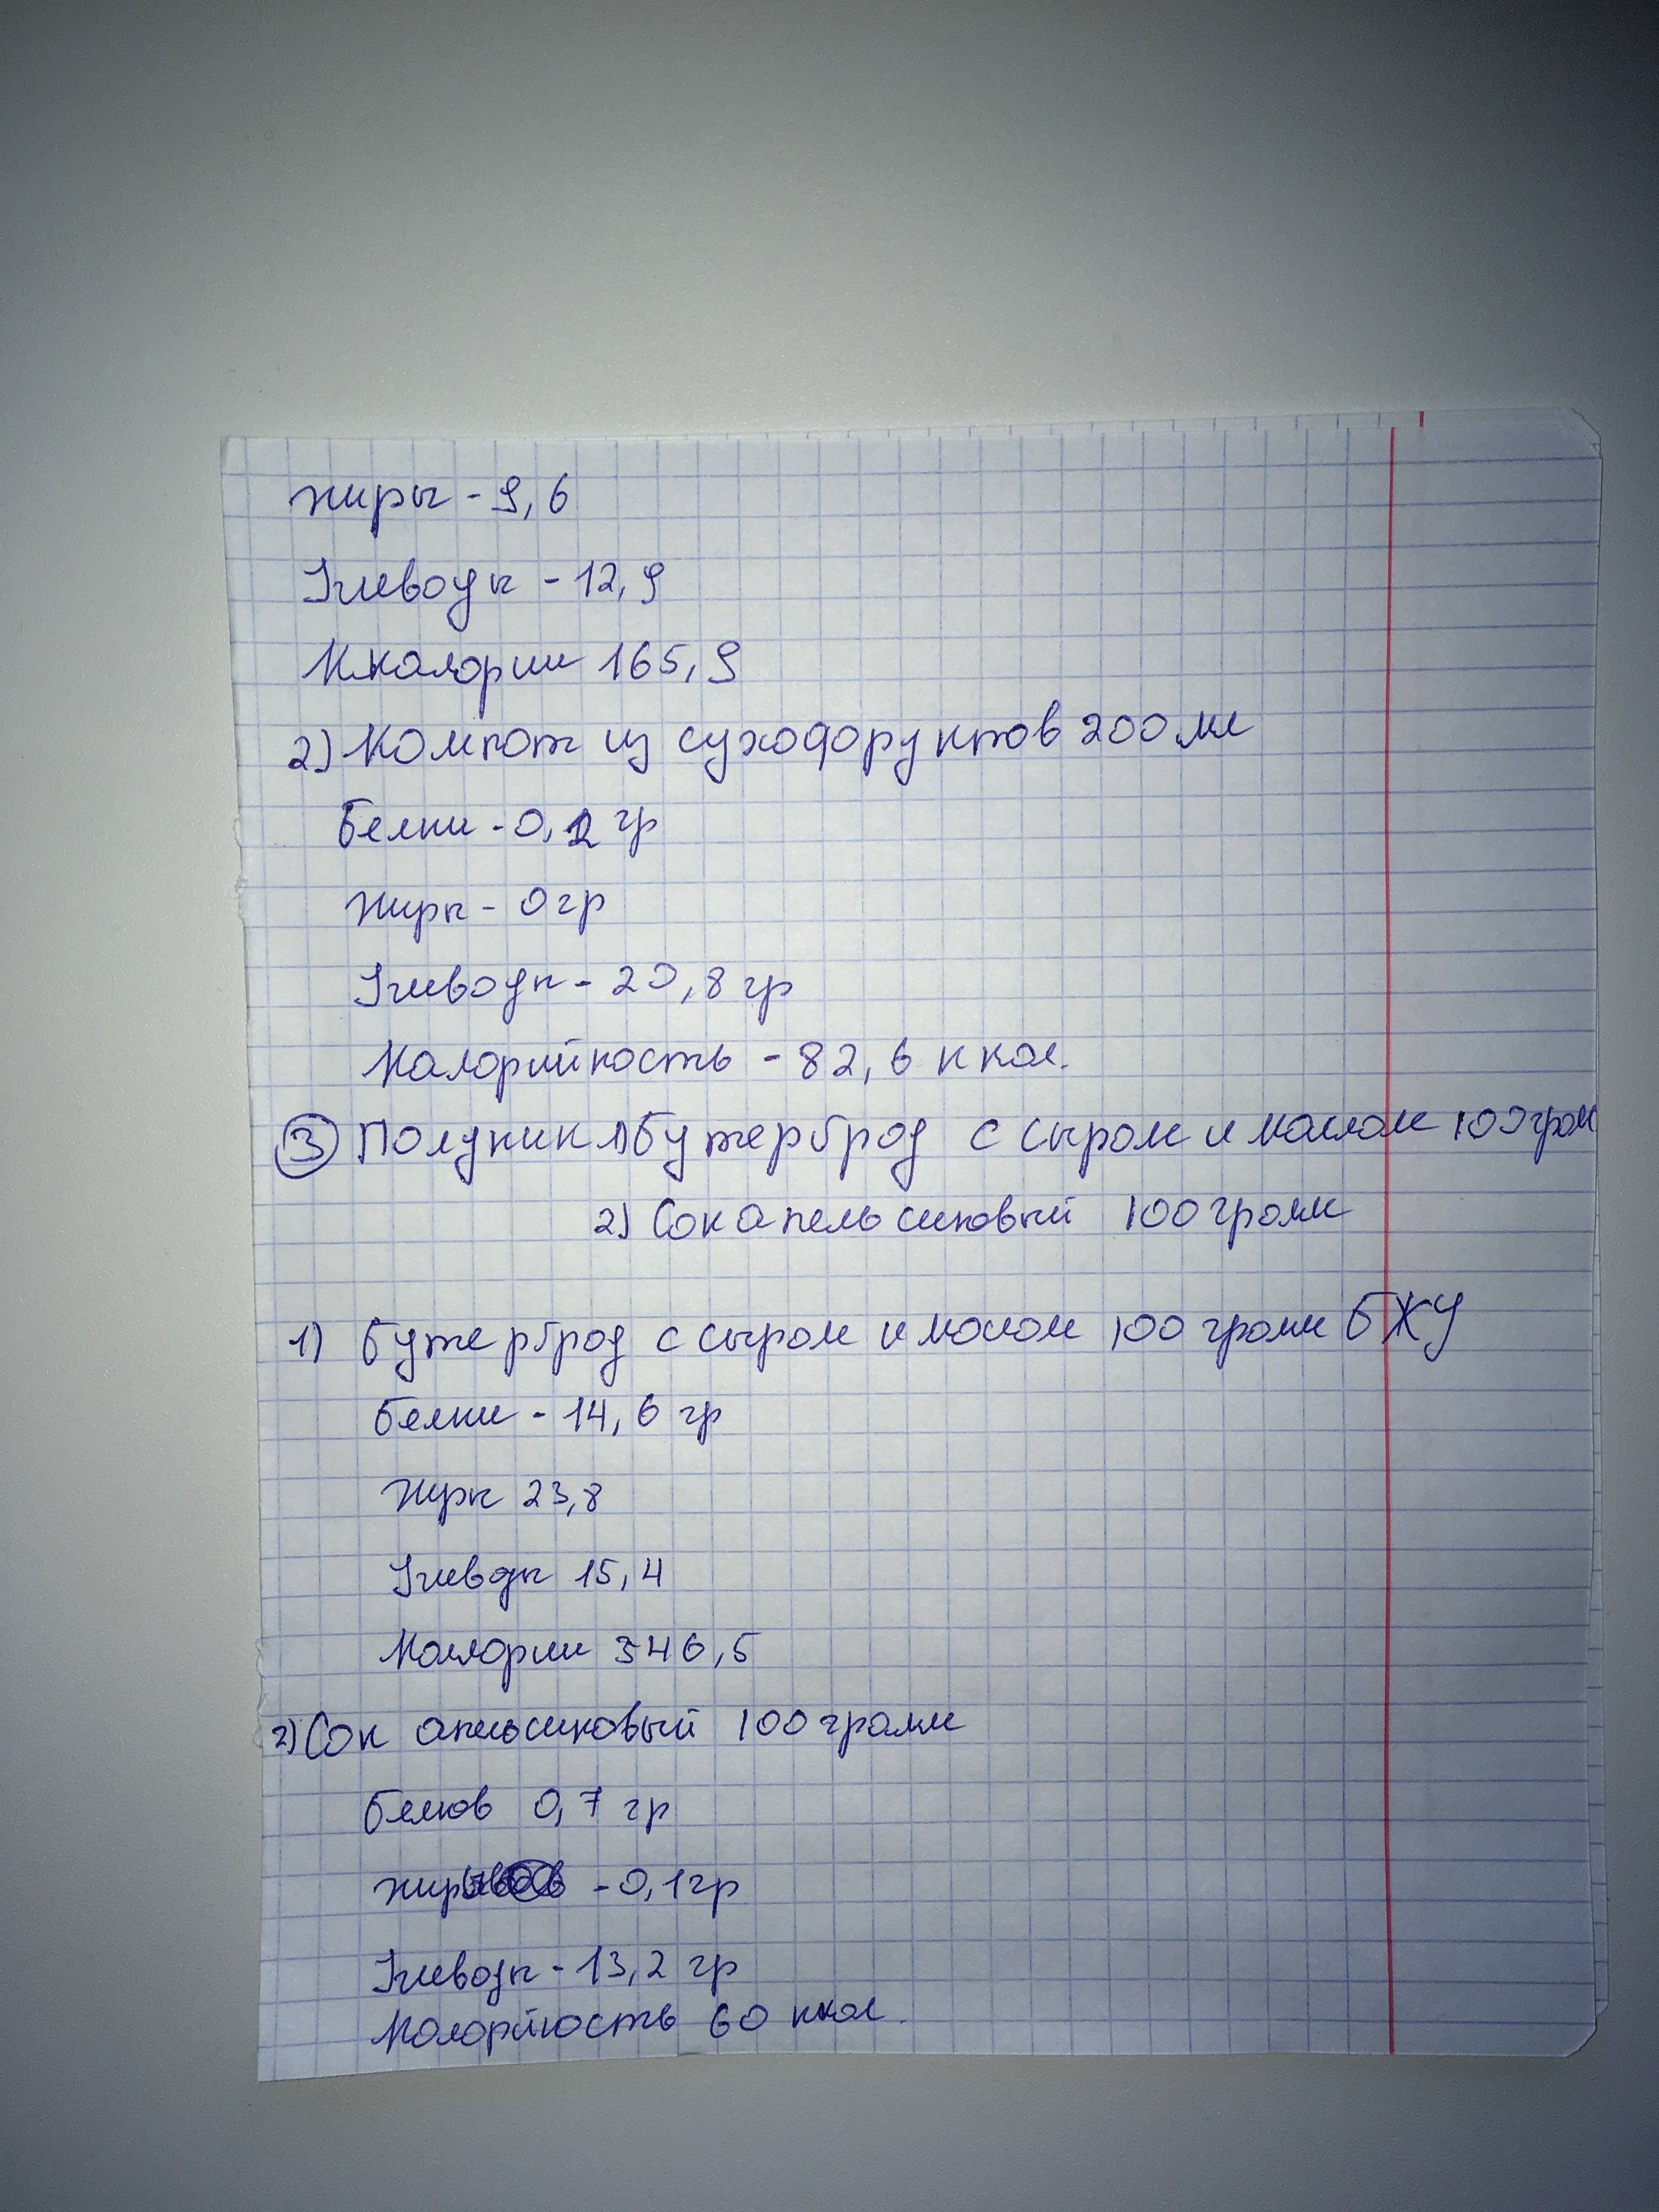 жиры - 9,6
Углеводы - 12,9
Ккалории 165,9
2) Компот из суходоруктов 200 мл
Белки - 0,2 гр
Жиры - 0 гр
Углеводы - 20,8 гр
Калорийность - 82,6 ккал.
③ Полдник 1) Бутерброд с сыром и маслом 100 грам
2) Сок апельсиновый 100 грамм
1) Бутерброд с сыром и маслом 100 грамм БЖУ
Белки - 14,6 гр
Жиры 23,8
Углеводы 15,4
Каллории 346,5
2) Сок апельсиновый 100 грамм
Белков 0,7 гр
жиров - 0,1 гр
Углеводы - 13,2 гр
Калорийность 60 ккал.